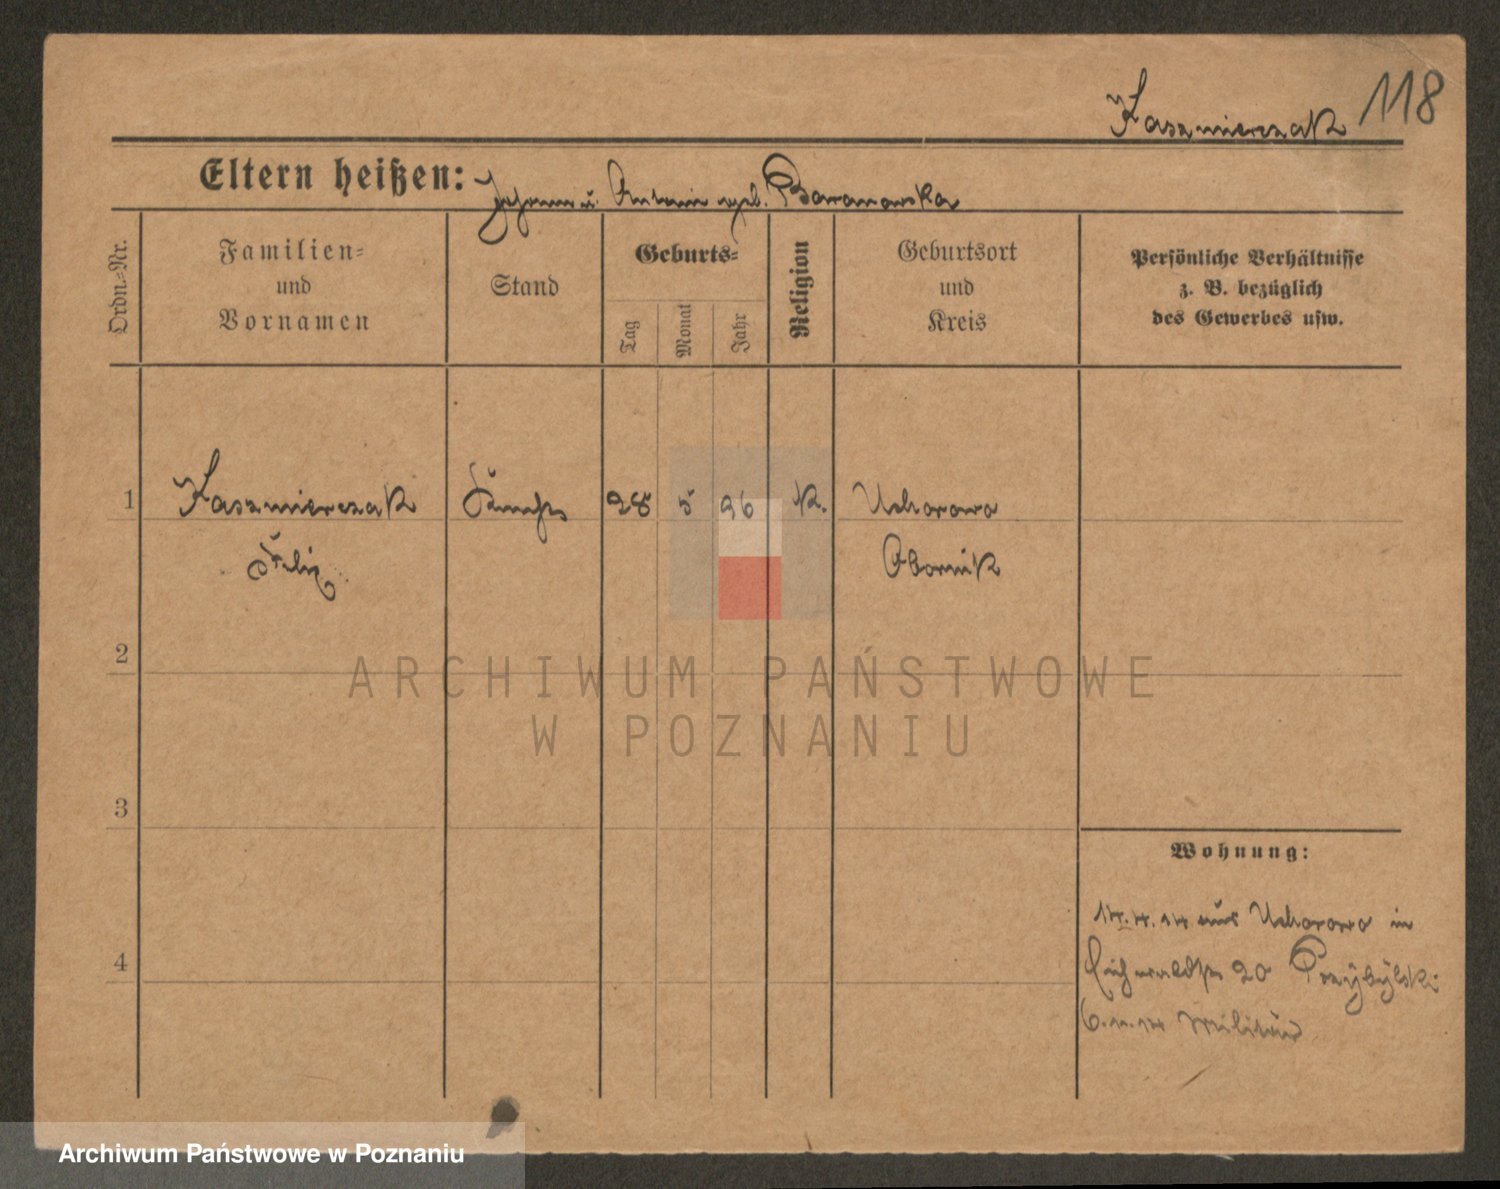 Kaszmierczak 118
Eltern heißen: Johann u. Antonie geb. Baranowska
Ordn.-Nr.
Familien-
und
Vornamen
Stand
Geburts-
Tag
Monat
Jahr
Religion
Geburtsort
und
Kreis
Persönliche Verhältnisse
z. B. bezüglich
des Gewerbes usw.
1 Kaszmierczak 28 5 96 K. Uchorowo
Felix Obornik
2
3
4
Wohnung:
14.4.14 aus Uchorowo in
Eichwaldstr 20 Przybylski
6.11.14 Militär
ARCHIWUM PAŃSTWOWE
W POZNANIU
Archiwum Państwowe w Poznaniu